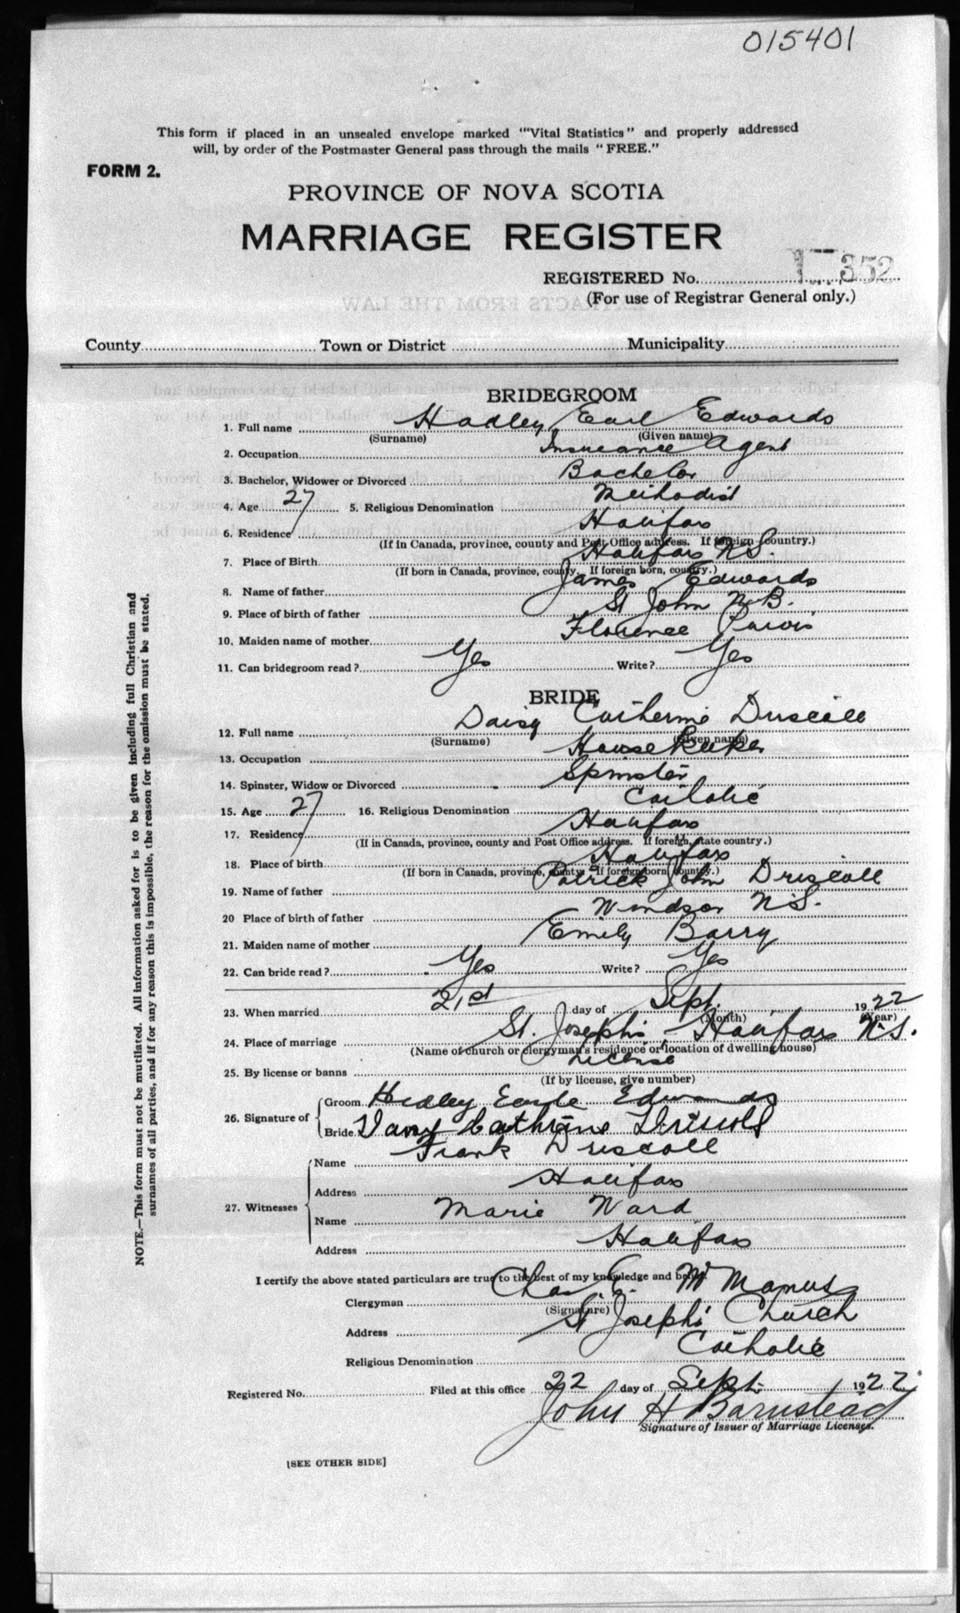 015401
This form if placed in an unsealed envelope marked "'Vital Statistics" and properly addressed
will, by order of the Postmaster General pass through the mails "FREE."
FORM 2.
PROVINCE OF NOVA SCOTIA
MARRIAGE REGISTER
REGISTERED No. 352
(For use of Registrar General only.)
County Town or District Municipality
BRIDEGROOM
1. Full name Hadley Earl Edwards
(Surname) (Given name)
2. Occupation Insurance Agent
3. Bachelor, Widower or Divorced Bachelor
4. Age 27 5. Religious Denomination Methodist
6. Residence Halifax
(If in Canada, province, county and Post Office address. If foreign country.)
7. Place of Birth Halifax N.S.
(If born in Canada, province, county. If foreign born, country.)
8. Name of father James Edwards
9. Place of birth of father St John N.B.
10. Maiden name of mother Florence Purvis
11. Can bridegroom read? Yes Write? Yes
BRIDE
12. Full name Daisy Catherine Driscoll
(Surname) (Given name)
13. Occupation House Keeker
14. Spinster, Widow or Divorced Spinster
15. Age 27 16. Religious Denomination Catholic
17. Residence Halifax
(If in Canada, province, county and Post Office address. If foreign, state country.)
18. Place of birth Halifax
(If born in Canada, province, county. If foreign born country.)
19. Name of father Patrick John Driscoll
20 Place of birth of father Windsor N.S.
21. Maiden name of mother Emily Barry
22. Can bride read? Yes Write? Yes
23. When married 21st day of Sept. 1922
(Month) (Year)
24. Place of marriage St. Joseph's, Halifax N.S.
(Name of church or clergyman's residence or location of dwelling house)
25. By license or banns License
(If by license, give number)
26. Signature of Groom Hedley Earle Edwards
Bride Cathrine Driscoll
27. Witnesses
Name Frank Driscoll
Address Halifax
Name Marie Ward
Address Halifax
I certify the above stated particulars are true to the best of my knowledge and belief.
Clergyman Chas E. McManus
(Signature)
Address St Joseph's Church
Religious Denomination Catholic
Registered No. Filed at this office 22 day of Sept. 1922
John H Barnstead
Signature of Issuer of Marriage Licenses.
[SEE OTHER SIDE]
NOTE.—This form must not be mutilated. All information asked for is to be given including full Christian and
surnames of all parties, and if for any reason this is impossible, the reason for the omission must be stated.